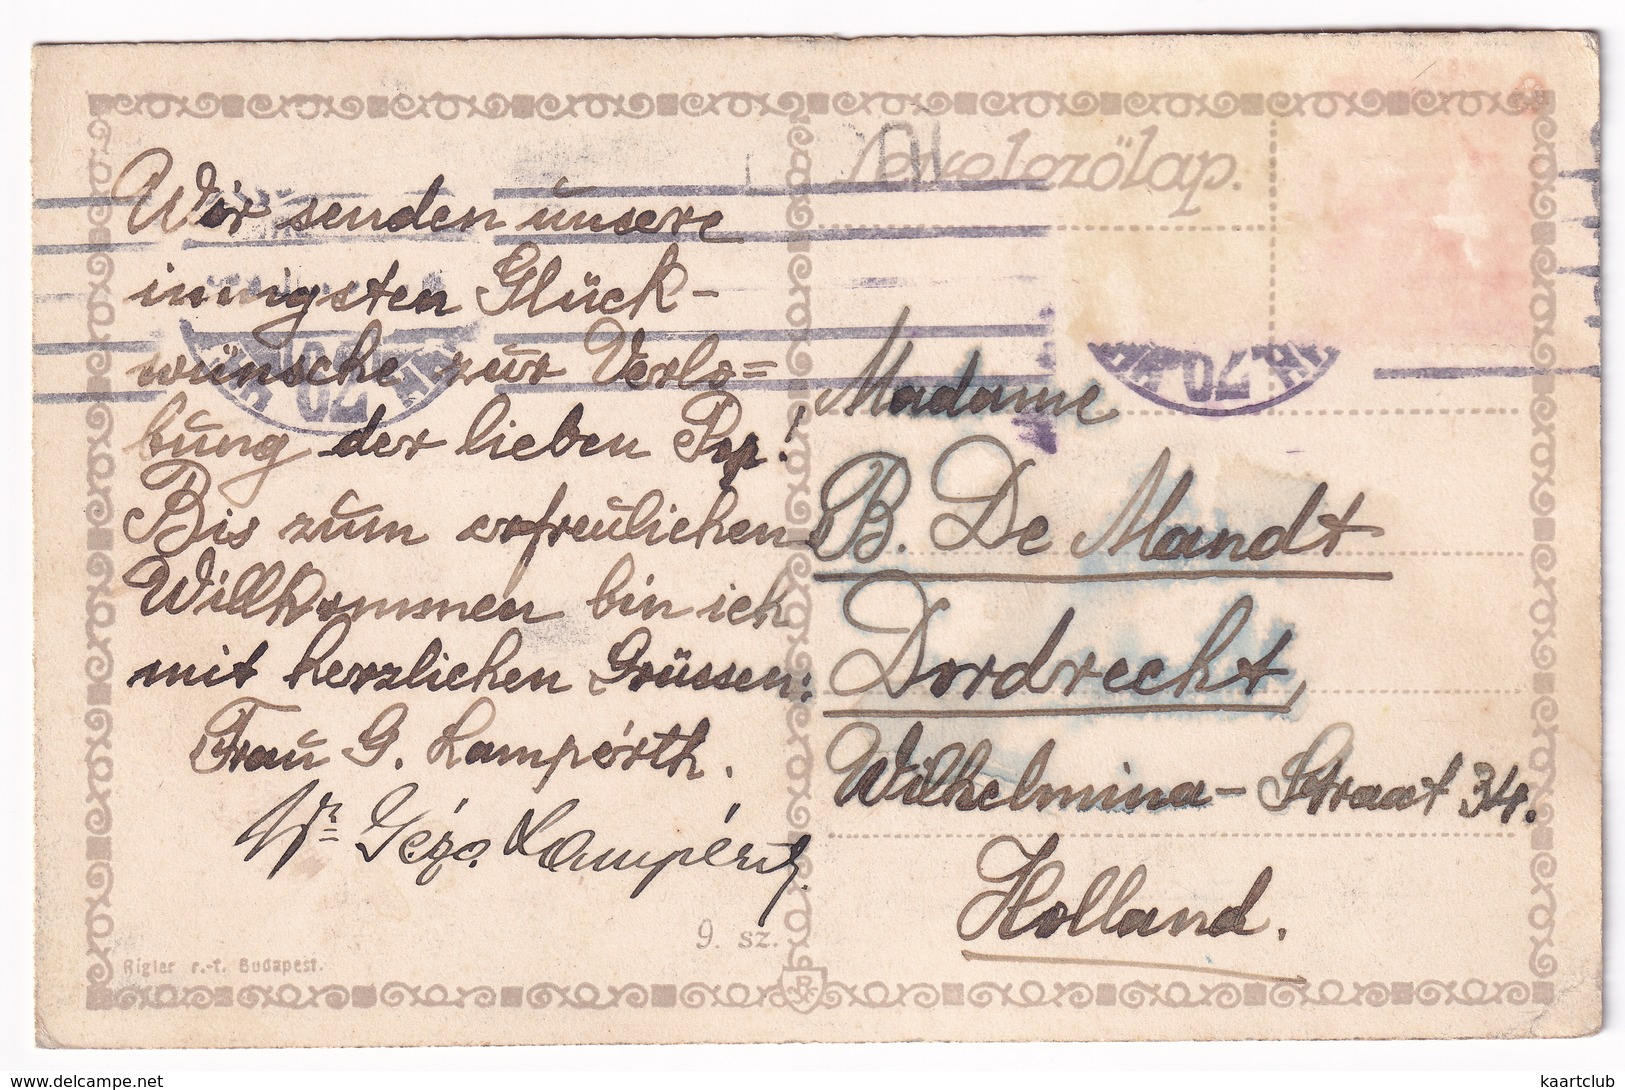 Levelezőlap.
Wir senden unsere
innigsten Glück-
wünsche zur Verlo=
bung der lieben Pup!
Bis zum erfreulichen
Willkommen bin ich
mit herzlichen Grüssen:
Frau G. Lampérth.
Géza Lampérth
Madame
B. De Mandt
Dordrecht,
Wilhelmina-Straat 34.
Holland.
9. sz.
Rigler r.-t. Budapest.
delcampe.net
kaartclub